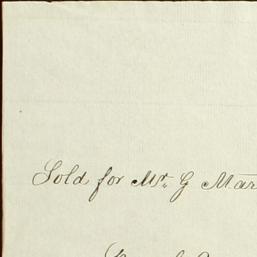 Sold for Mr. G Mar